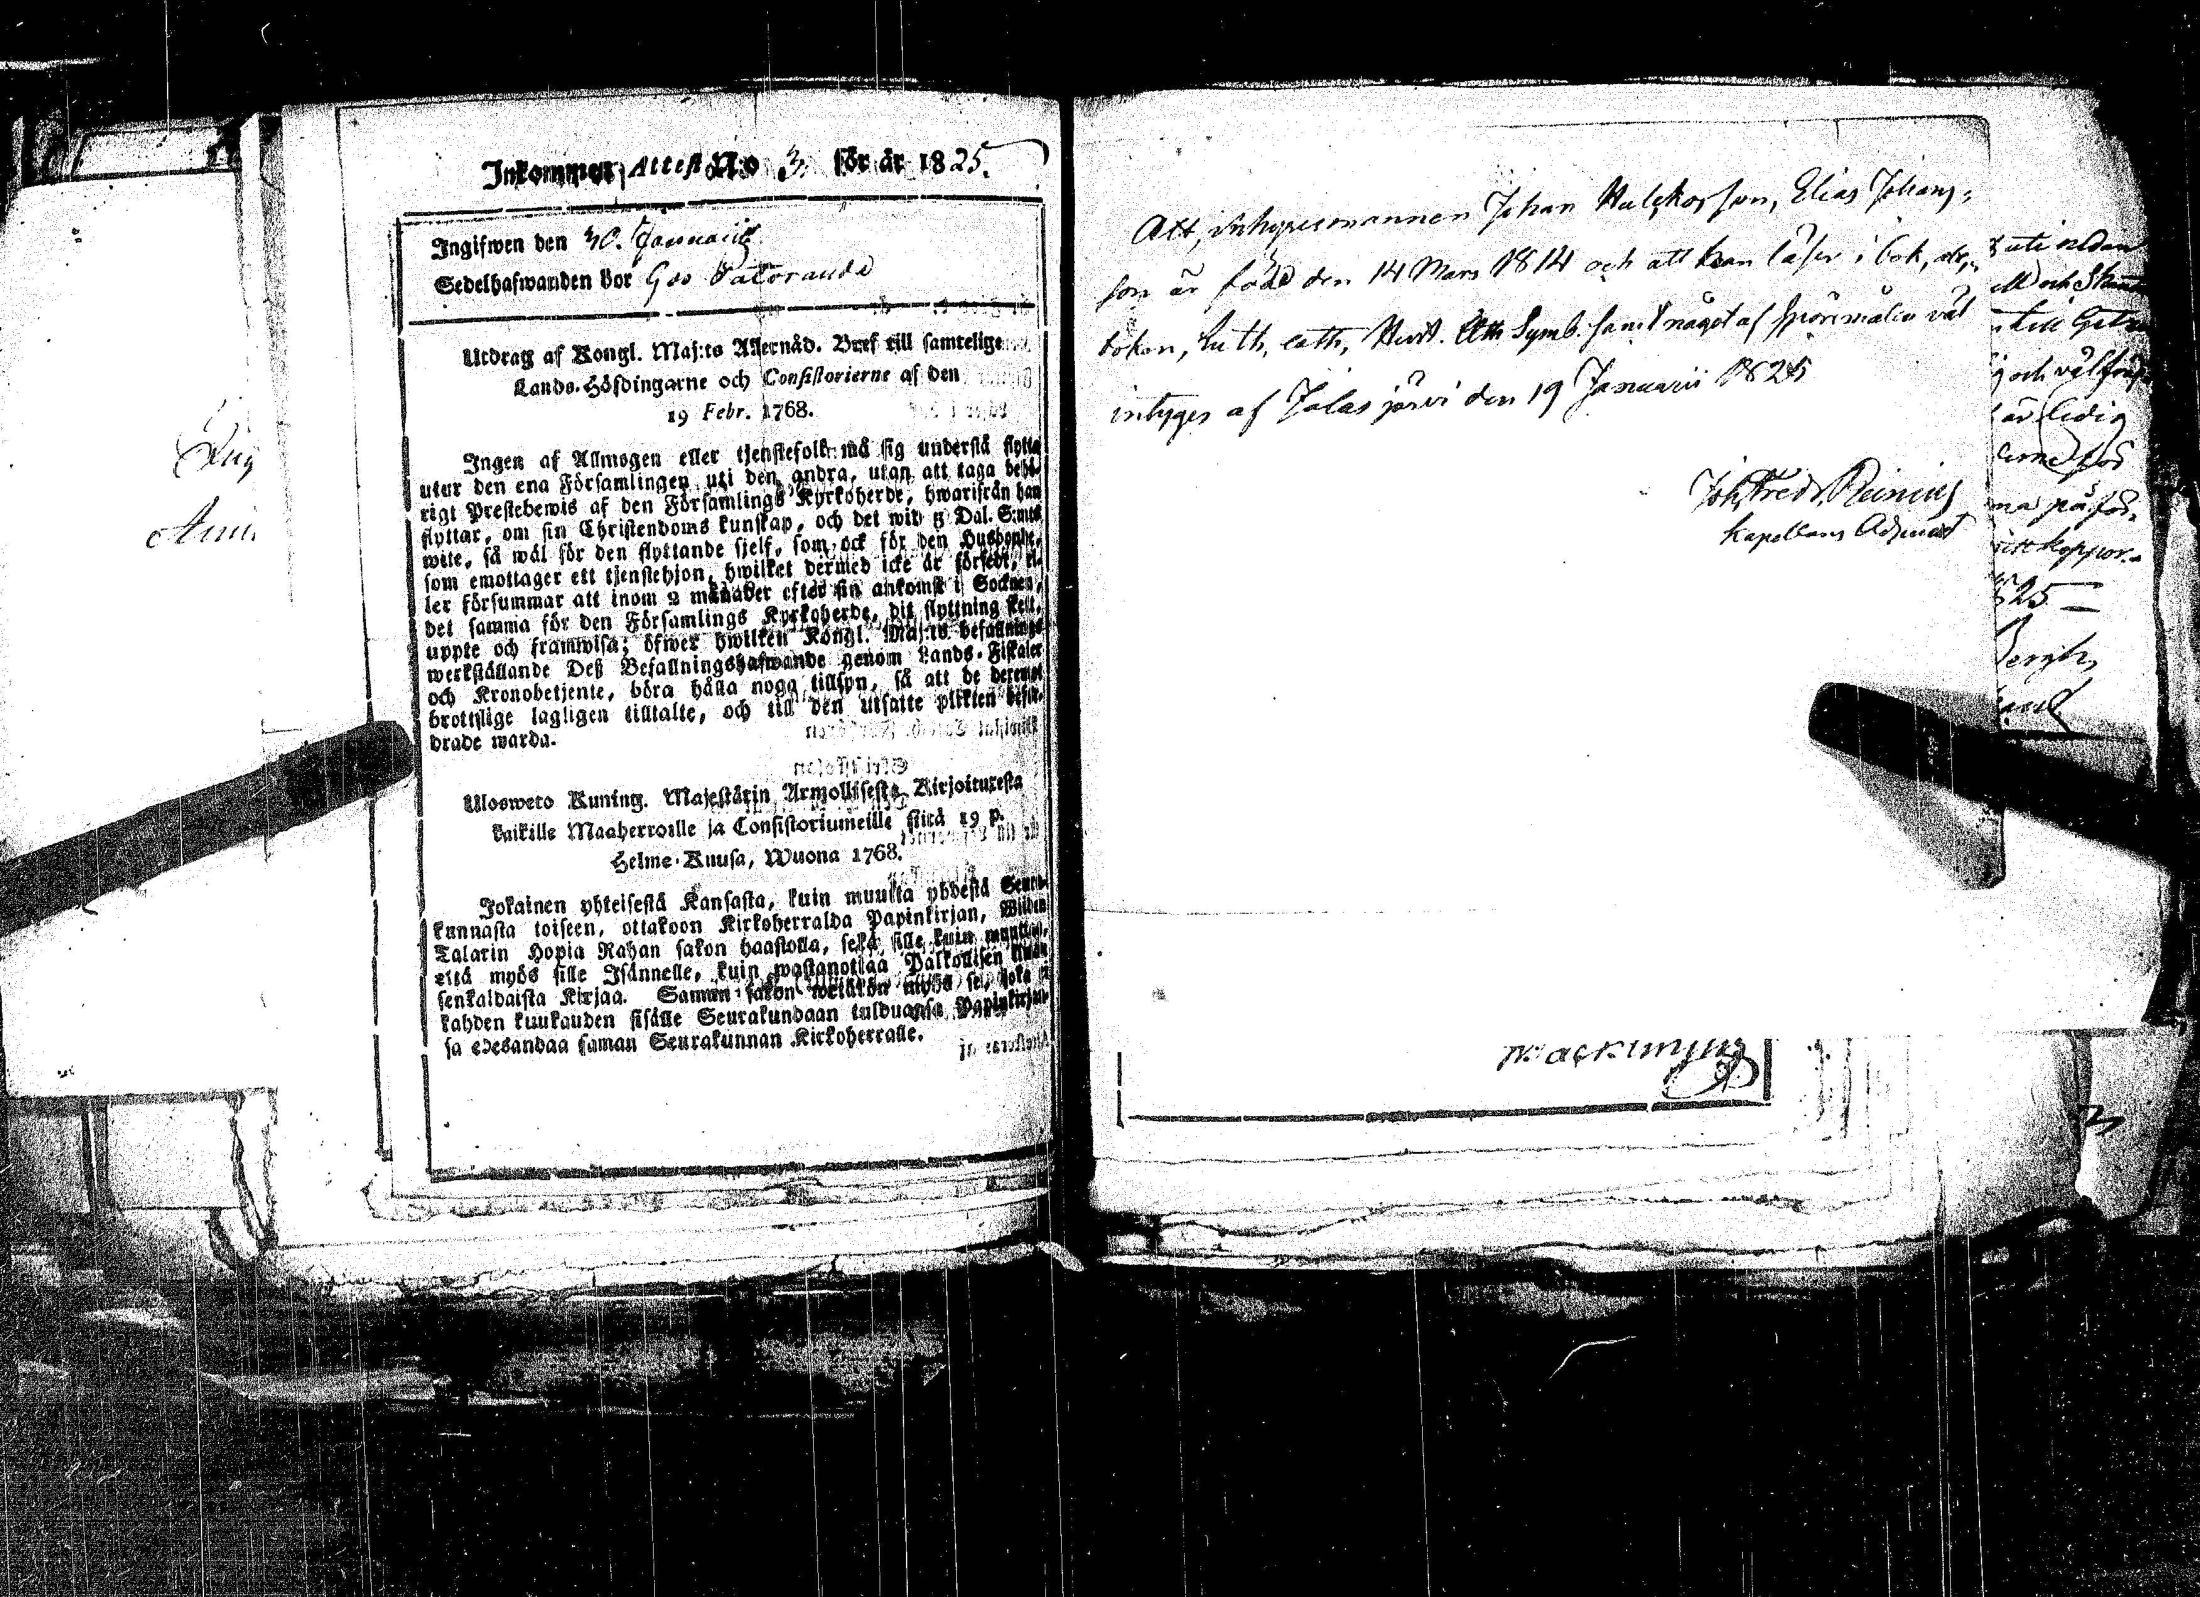 Inkommen Attest No 3. för år 1825.
Ingifwen den 30. Januarii
Sedelhafwanden bor hos
Utdrag af Kongl. Maj:ts Allernåd. Bref till samtelige
Lands-Höfdingarne och Consistorierne af den
19 Febr. 1768.
Ingen af Allmogen eller tjenstefolk må sig understå flytta
utur den ena Församlingen uti den andra, utan att taga behö-
rigt Prestebewis af den Församlings Kyrkoherde, hwarifrån han
flyttar, om sin Christendoms kunskap, och det wid 5 Dal. S:mts
wite, så wäl för den flyttande sjelf, som ock för den Husbonde,
som emottager ett tjenstehjon, hwilket dermed icke är försedt, el-
ler försummar att inom 2 månader efter sin ankomst i Socknen,
det samma för den Församlings Kyrkoherde, dit flyttning skett,
uppte och framwisa; öfwer hwilken Kongl. Maj:ts befallnings
werkställande Deß Befallningshafwande genom Lands-Fiskaler
och Kronobetjente, böra hålla noga tillsyn, så att de deremot
brottslige lagligen tilltalte, och till den utsatte plikten befor-
drade warda.
Ulosweto Kuning. Majestätin Armollisesta Kirjoituxesta
kaikille Maaherroille ja Consistoriumeille siitä 19 p.
Helme-Kuusa, Wuona 1768.
Jokainen yhteisestä Kansasta, kuin muutta yhdestä Seura-
kunnasta toiseen, ottakoon Kirkoherralda Papinkirjan, Wiiden
Talarin Hopia Rahan sakon haastolla, sekä sille kuin muuttaa,
että myös sille Isännelle, kuin wastanottaa Palkollisen ilman
senkaldaista Kirjaa. Saman sakon wetäkön myös se, joka ei
kahden kuukauden sisälle Seurakundaan tulduansa Papinkirjan-
sa edesandaa saman Seurakunnan Kirkoherralle.
Att, Inhyresmannen Johan Elias Johans-
son är född den 14 Mars 1814 och att han läser i bok,
boken, Luth. cath. Symb. samt något af spörsmålen väl
intyges af Jalasjärvi den 19 Januarii 1825
Joh. Fredr. Reinius
Kapellans Adjunct
och
och
är ledig
på
825